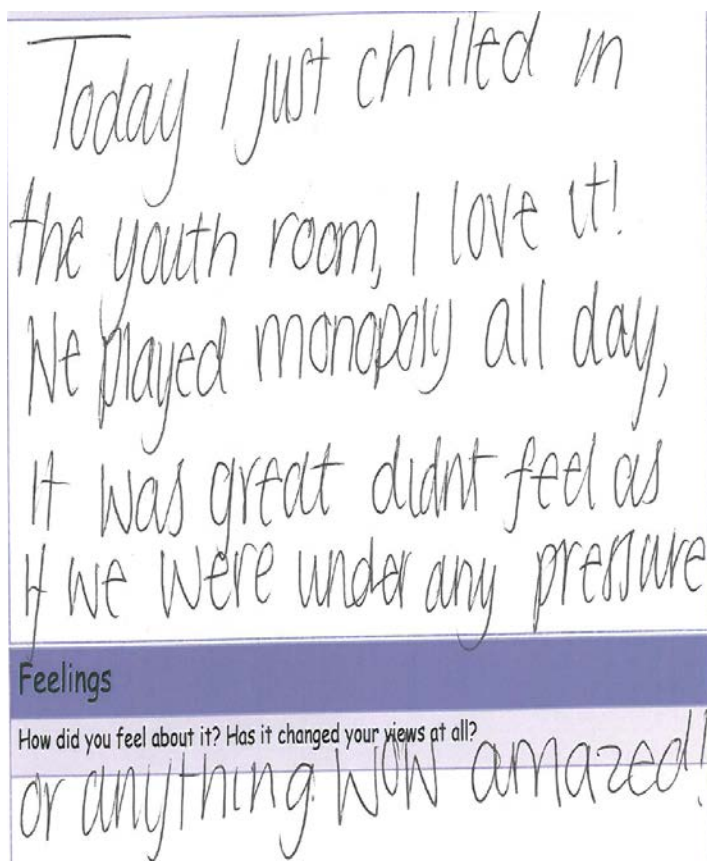 Today I just chilled in
the youth room, I love it!
We played monopoly all day,
It was great didnt feel as
if we were under any pressure
Feelings
How did you feel about it? Has it changed your views at all?
or anything. WOW amazed!